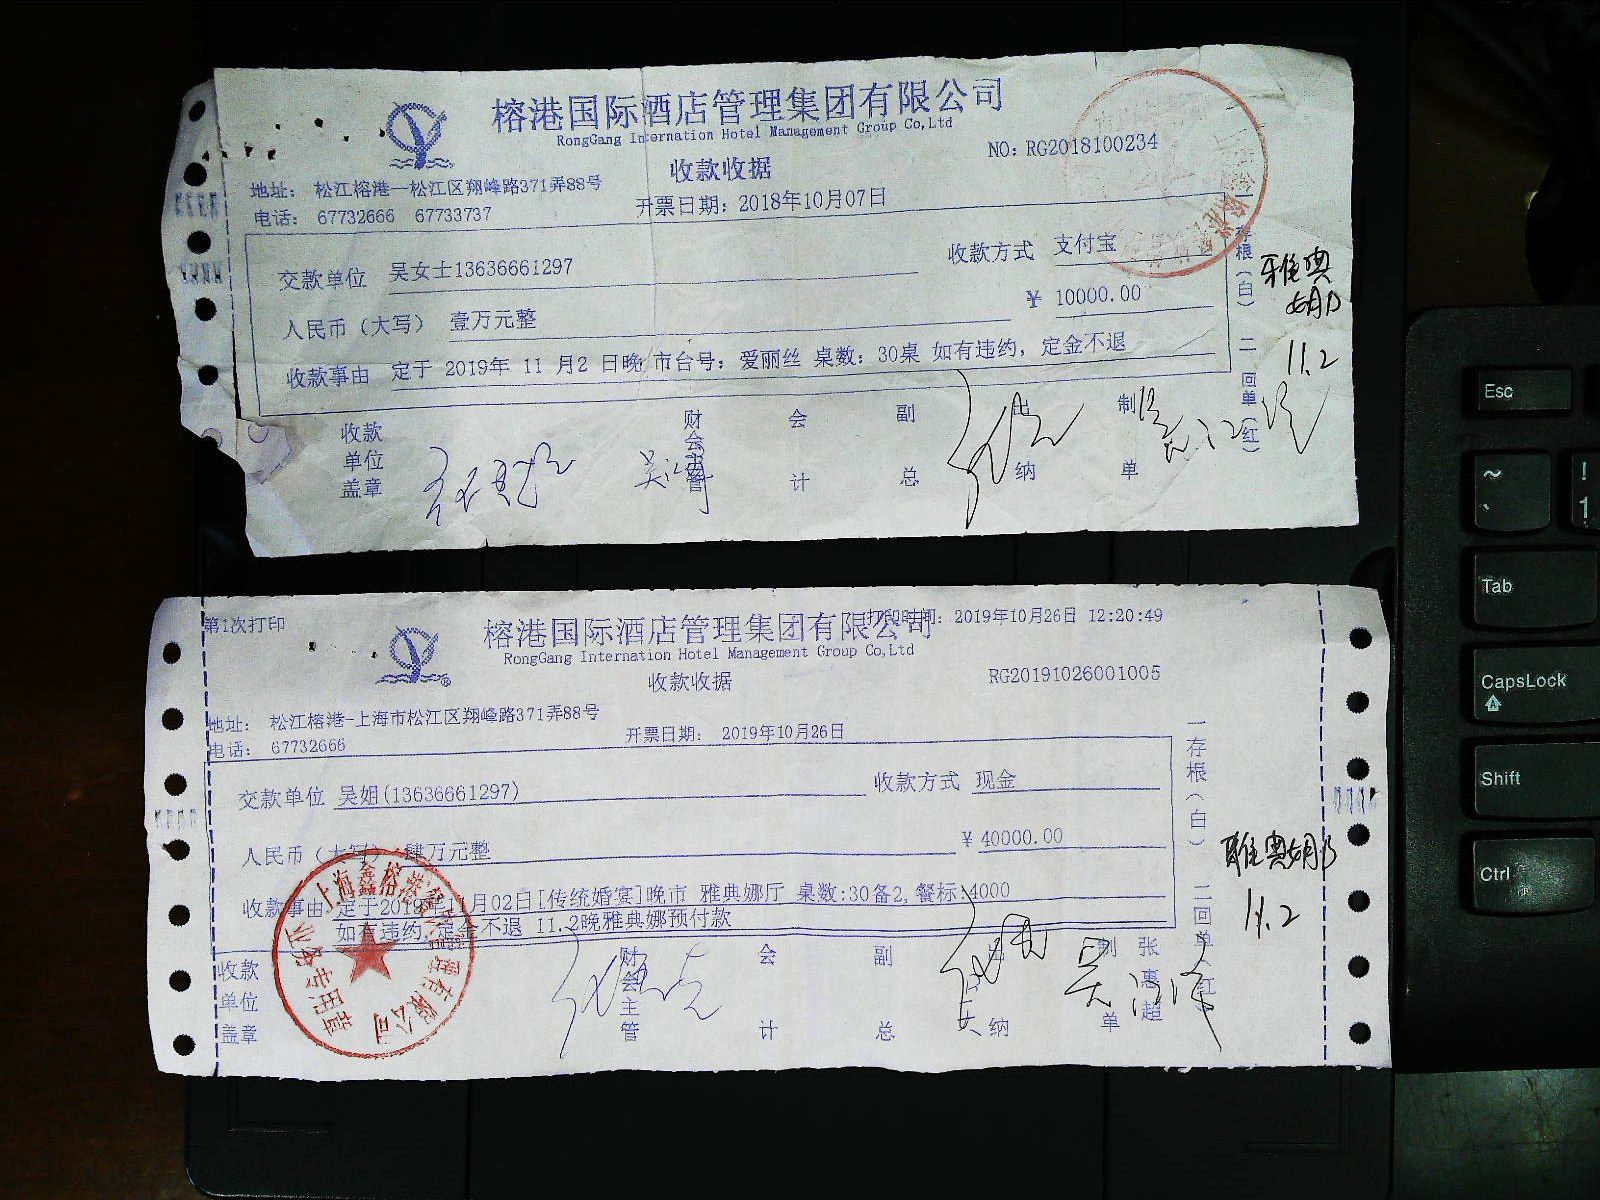 榕港国际酒店管理集团有限公司
RongGang Internation Hotel Management Group Co,Ltd
收款收据
NO: RG2018100234
地址： 松江榕港—松江区翔峰路371弄88号
电话： 67732666 67733737
开票日期： 2018年10月07日
交款单位 吴女士13636661297
收款方式 支付宝
人民币（大写） 壹万元整
¥ 10000.00
收款事由 定于 2019年 11 月2 日晚 市台号：爱丽丝 桌数：30桌 如有违约，定金不退
收款单位盖章
财会主管
会计
副总
出纳
制单
存根（白） 二回单（红）
雅典娜
11.2
第1次打印
榕港国际酒店管理集团有限公司
打印时间： 2019年10月26日 12:20:49
RongGang Internation Hotel Management Group Co,Ltd
收款收据
RG20191026001005
地址： 松江榕港-上海市松江区翔峰路371弄88号
电话： 67732666
开票日期： 2019年10月26日
交款单位 吴姐(13636661297)
收款方式 现金
人民币（大写） 肆万元整
¥ 40000.00
收款事由 定于2019年11月02日[传统婚宴]晚市 雅典娜厅 桌数:30备2,餐标:4000
如有违约,定金不退 11.2晚雅典娜预付款
收款单位盖章
财会主管
会计
副总
出纳
制单
张惠超
一存根（白） 二回单（红）
雅典娜
11.2
业务专用章
Esc
~
`
!
1
Tab
CapsLock
Shift
Ctrl